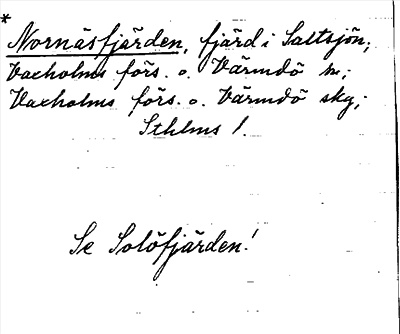 *
Nornäsfjärden, fjärd i Saltsjön;
Vaxholms förs. o. Värmdö hr;
Vaxholms förs. o. Värmdö skg;
Sthlms l.
Se Solöfjärden!